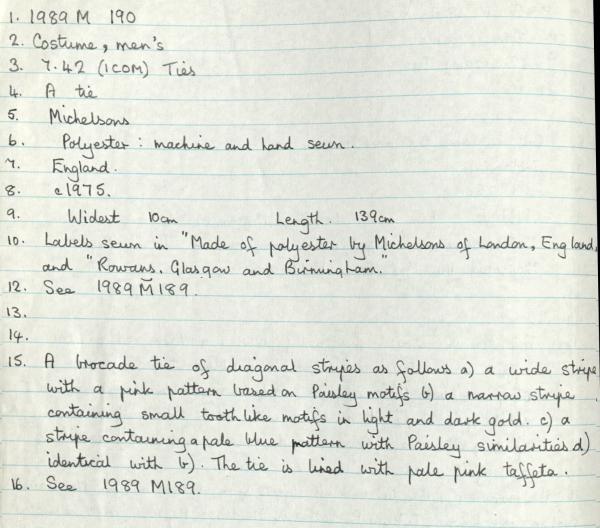 1. 1989 M 190
2. Costume, men's
3. 7.42 (ICOM) Ties
4. A tie
5. Michelsons
6. Polyester : machine and hand sewn.
7. England.
8. c1975.
9. Widest 10cm Length. 139cm
10. Labels sewn in "Made of polyester by Michelsons of London, England,
and "Rowans. Glasgow and Birmingham."
12. See 1989 M189.
13.
14.
15. A brocade tie of diagonal stripes as follows a) a wide stripe
with a pink pattern based on Paisley motifs b) a narrow stripe
containing small toothlike motifs in light and dark gold. c) a
stripe containing a pale blue pattern with Paisley similarities d)
identical with b). The tie is lined with pale pink taffeta.
16. See 1989 M189.